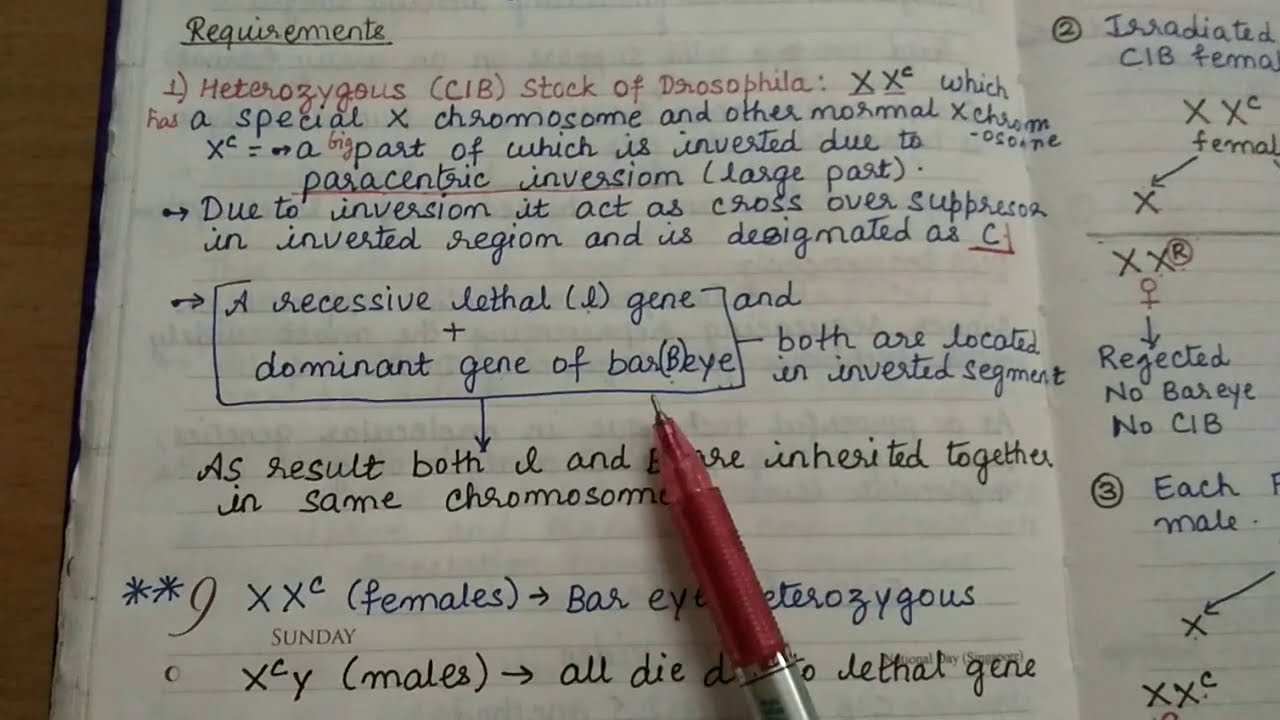 Requirements
1) Heterozygous (ClB) Stock of Drosophila: X Xᶜ which
has a special X chromosome and other normal X chrom
-osome
Xᶜ = → a big part of which is inverted due to
paracentric inversion (large part).
→ Due to inversion it act as cross over suppresor
in inverted region and is designated as C
→ A recessive lethal (l) gene and
+
dominant gene of bar(B)eye
both are located
in inverted segment
As result both l and are inherited together
in same chromosome
**9 X Xᶜ (females) → Bar eye heterozygous
SUNDAY
XᶜY (males) → all die to lethal gene
National Day (Singapore)
② Irradiated
ClB
X Xᶜ
X
X X Ⓡ
♀
Rejected
No Bar eye
No ClB
③ Each
male.
X
X Xᶜ